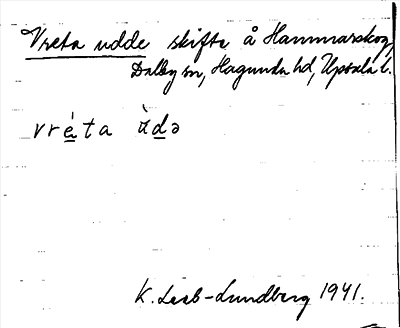 Vreta udde skifte å Hammarskog,
Dalby sn, Hagunda hd, Uppsala l.
vré̲ta ùd̲ə
K. Leab-Lundberg 1941.